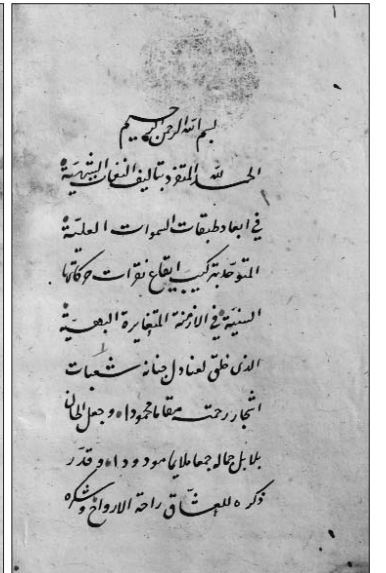 بسم الله الرحمن الرحيم
الحمد لله المتفرد بتاليف النغمات الشهية
في ابعاد طبقات السموات العلية
المتوحد بتركيب ايقاع نقرات حركاتها
السنية في الازمنة المتغايرة البهية
الذى خلق لعنادل جنانه شعبات
اشجار رحمته مقاما محمودا و جعل الحان
بلابل جماله جمعا ملايما مودودا و قدر
ذكره للعشاق راحة الارواح و شكره